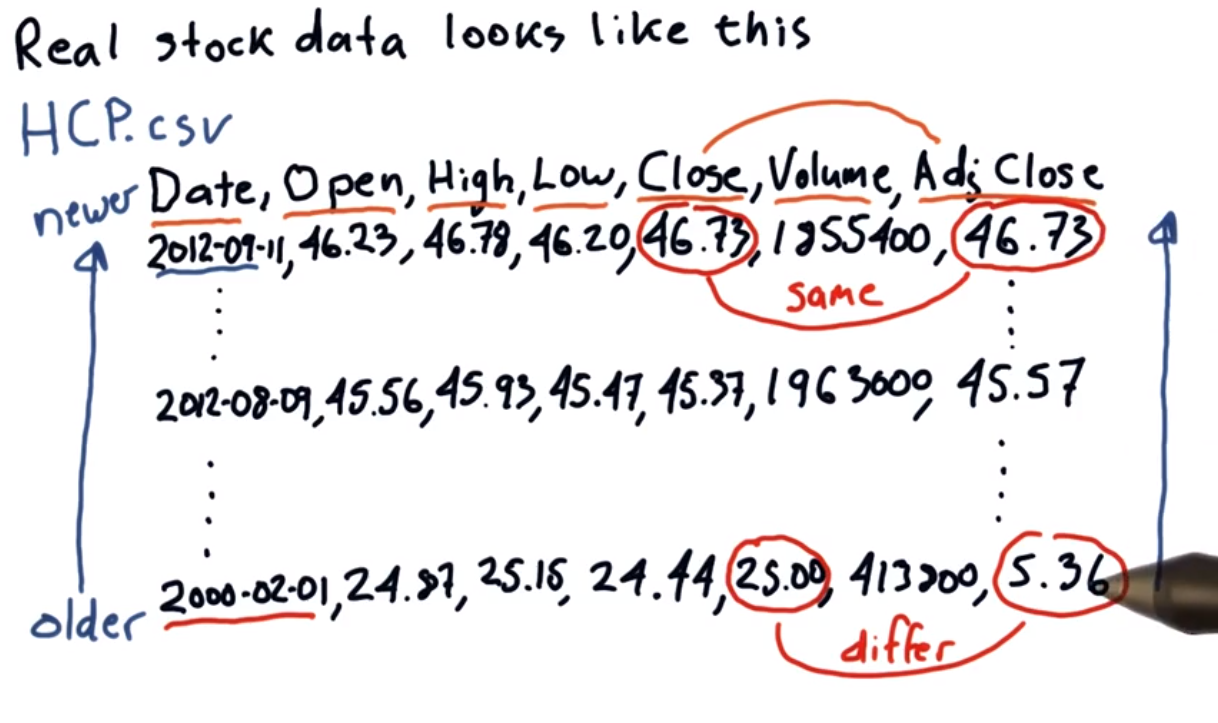 Real stock data looks like this
HCP.csv
newer Date, Open, High, Low, Close, Volume, Adj Close
2012-09-11, 46.23, 46.78, 46.20, 46.73, 1855400, 46.73
same
2012-08-09, 45.56, 45.93, 45.47, 45.37, 1963600, 45.57
older 2000-02-01, 24.87, 25.15, 24.44, 25.00, 413800, 5.36
differ